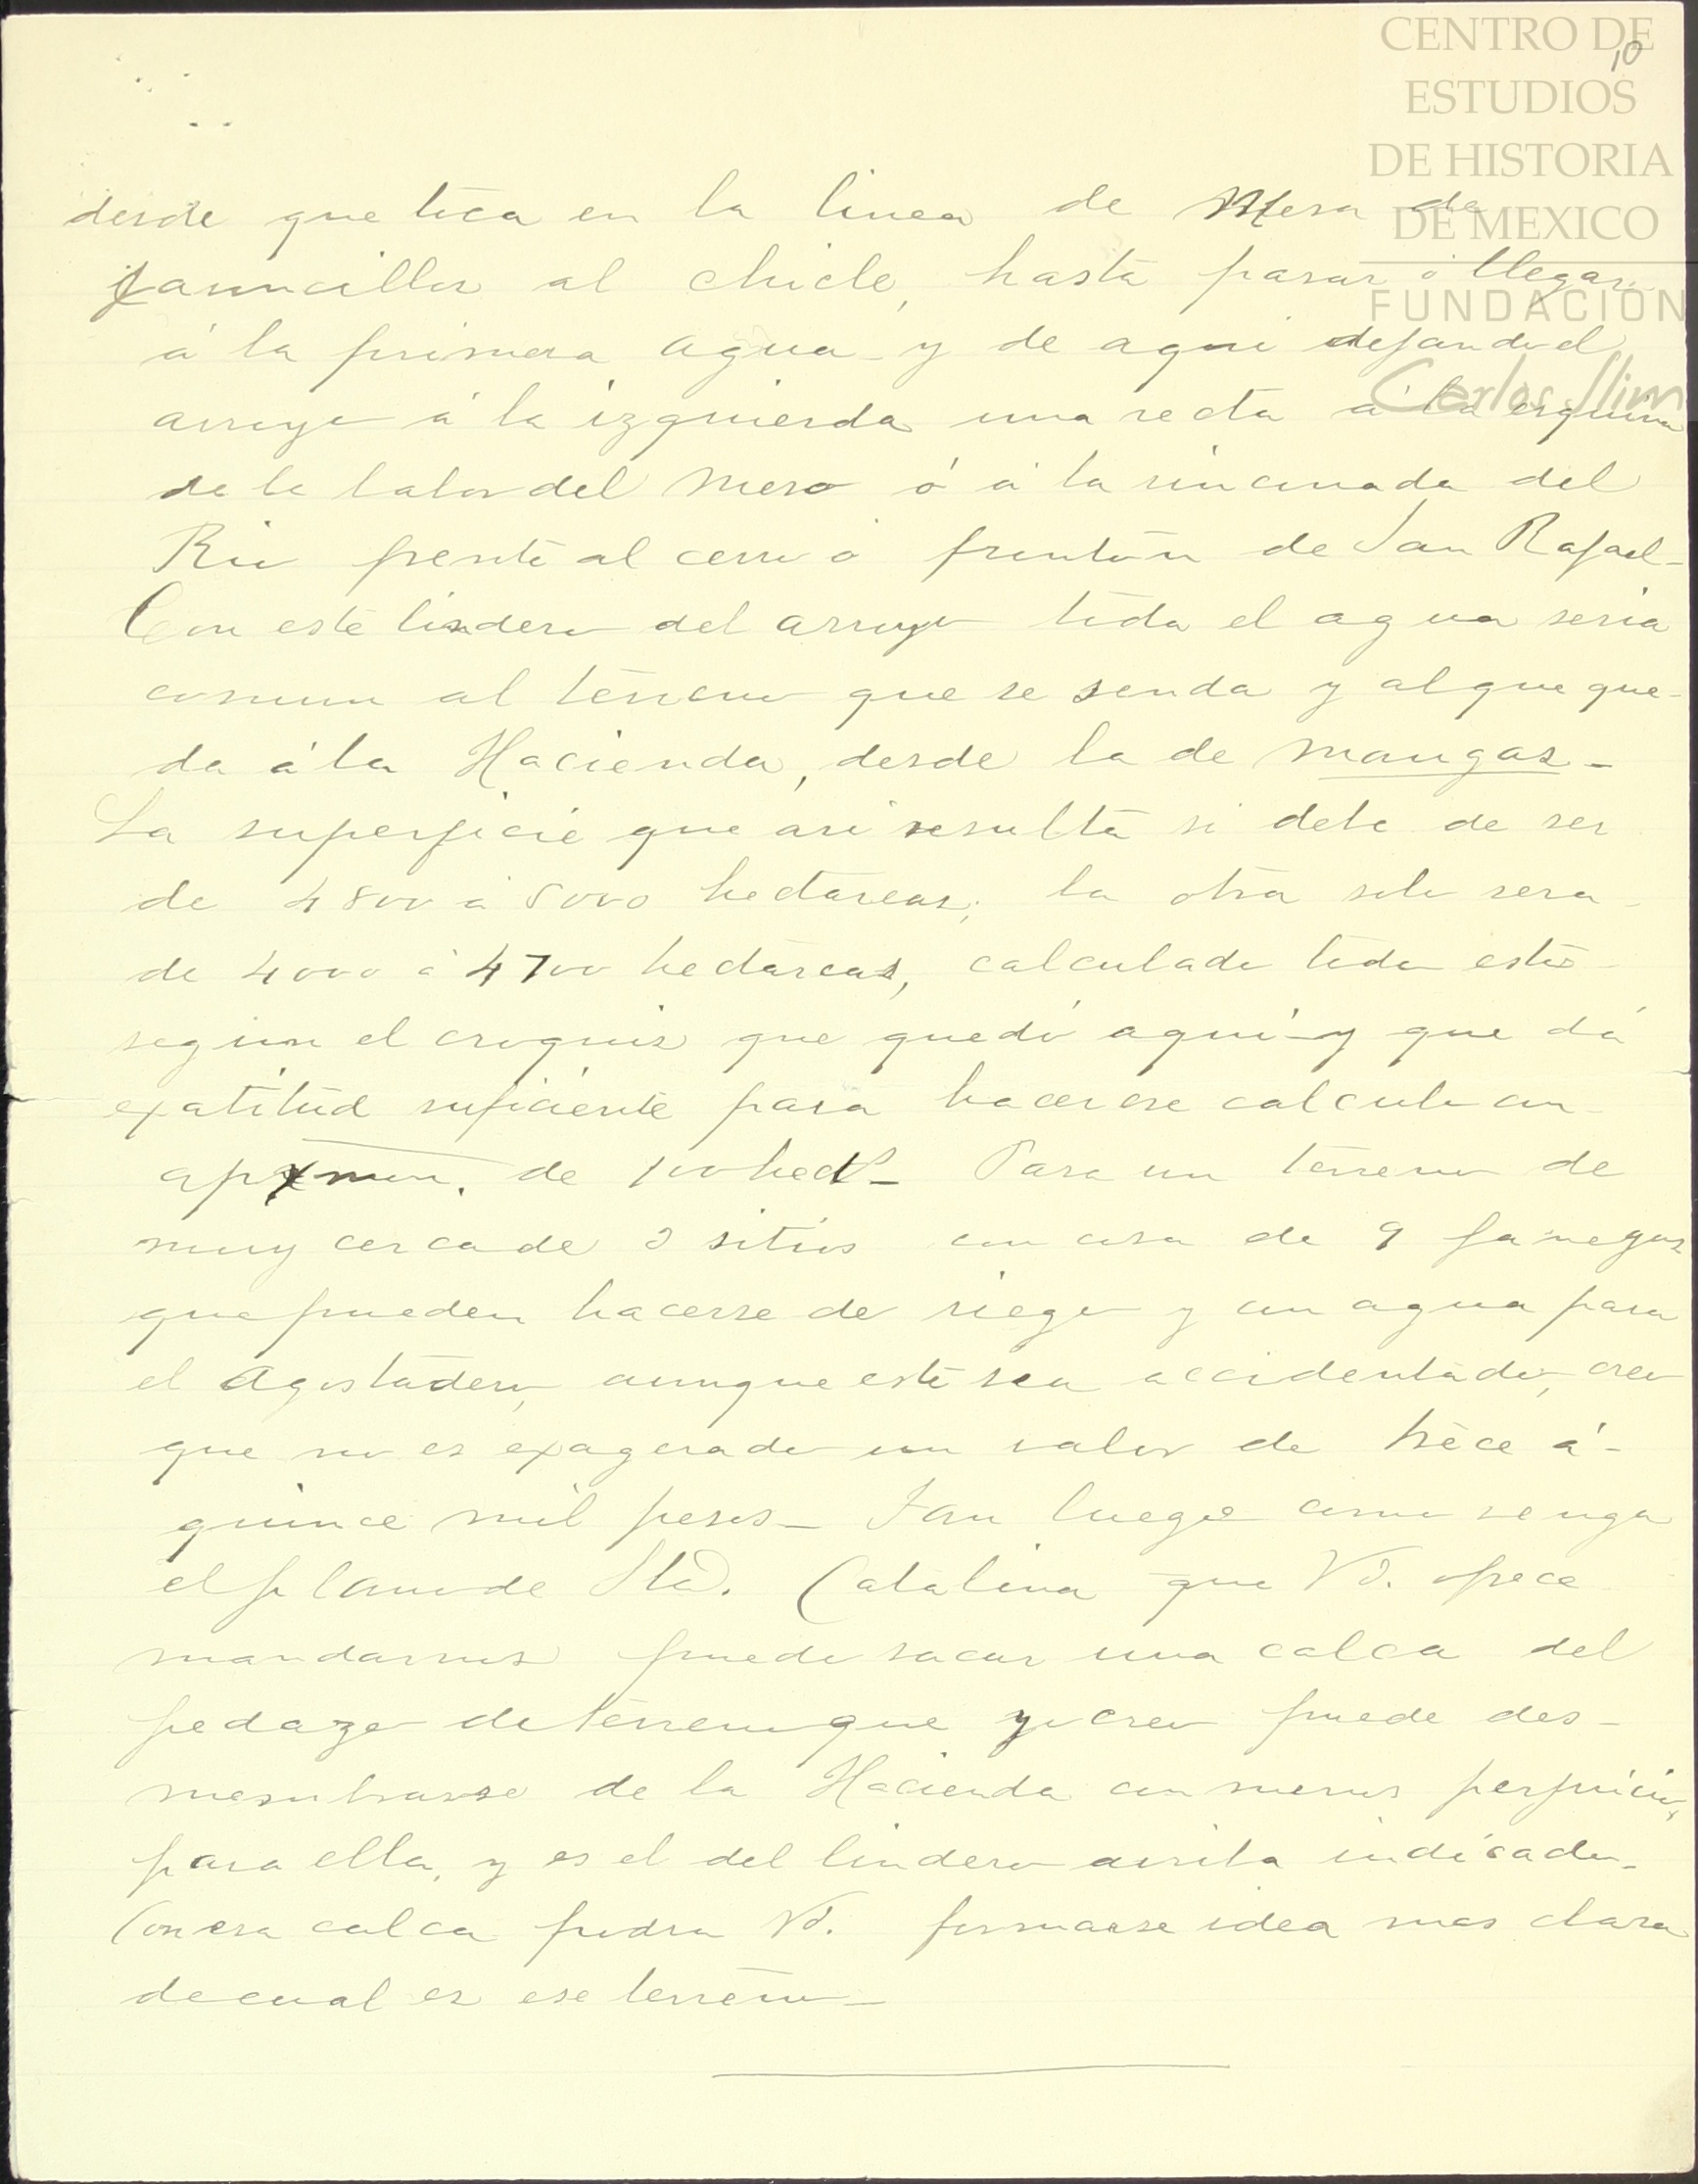 CENTRO DE
ESTUDIOS
DE HISTORIA
DE MEXICO
FUNDACIÓN
Carlos Slim
10
desde que toca en la linea de Mesa de
al chicle, hasta pasar ó llegar
á la primera agua y de aqui dejando el
arroyo á la izquierda una recta á la esquina
de la labor del Meso ó á la rinconada del
Rio frente al cerro ó frontón de San Rafael_
Con este lindero del arroyo toda el agua seria
comun al terreno que se venda y al que que-
da á la Hacienda, desde la de mangas_
La superficie que asi resulta si debe de ser
de 4800 á 5000 hectareas; la otra solo sera
de 4000 á 4700 hectareas, calculado todo esto
segun el croquis que quedó aquí y que dá
exatitud suficiente para hacer ese calculo con
de 100 hects_ Para un terreno de
muy cerca de 3 sitios con cosa de 9 fanegas
que pueden hacerse de riego y con agua para
el Agostadero, aunque este sea accidentado, creo
que no es exagerado un valor de trece á-
quince mil pesos_ Tan luego como venga
el plano de Sta. Catalina que Vd. ofrece
mandarnos puede sacar una calca del
pedazo de terreno que yo creo puede des-
membrarse de la Hacienda con menos perjuicio,
para ella, y es el del lindero arriba indicado_
Con esa calca podra Vd. formarse idea mas clara
de cual es ese terreno_